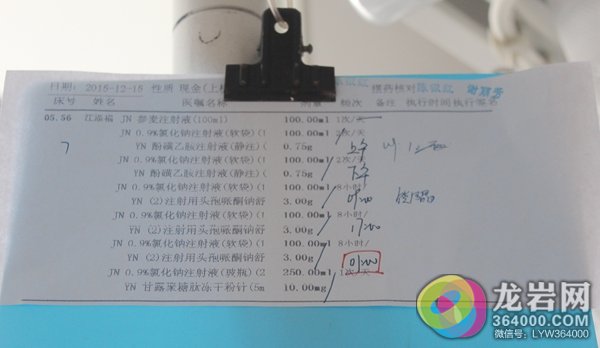 日期: 2015-12-15 性质 现金(上杭 摆药核对
床号 姓名 医嘱名称 剂量 频次 备注 执行时间 执行签名
05.56 江添福 JN 参麦注射液(100ml) 100.00ml 1次/天
JN 0.9%氯化钠注射液(软袋)(1 100.00ml 2次/天
7 YN 酚磺乙胺注射液(静注)( 0.75g 上午
JN 0.9%氯化钠注射液(软袋)(1 100.00ml 2次/天
YN 酚磺乙胺注射液(静注)( 0.75g 下午
JN 0.9%氯化钠注射液(软袋)(1 100.00ml 8小时/
YN (2)注射用头孢哌酮钠舒 3.00g
JN 0.9%氯化钠注射液(软袋)(1 100.00ml 8小时/
YN (2)注射用头孢哌酮钠舒 3.00g 17:00
JN 0.9%氯化钠注射液(软袋)(1 100.00ml 8小时/
YN (2)注射用头孢哌酮钠舒 3.00g
JN 0.9%氯化钠注射液(玻瓶)(2 250.00ml 1次/天
YN 甘露聚糖肽冻干粉针(5m 10.00mg
龙岩网
364000.COM
微信号: LYW364000